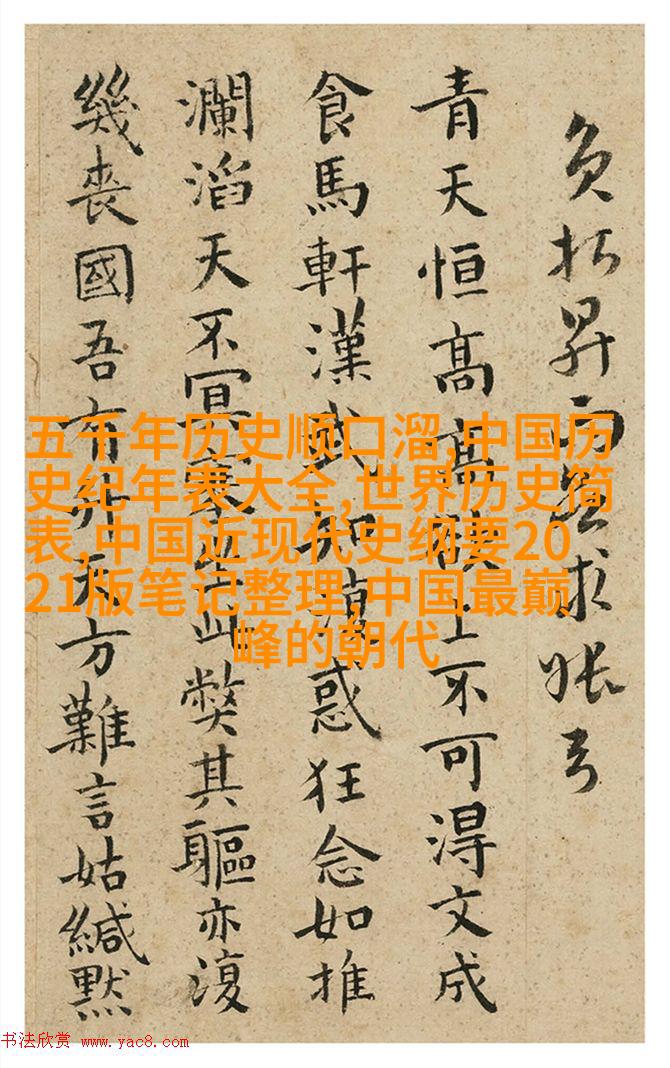 負 昇 求
青天恒高高欲上不可淂文成
食馬軒漢武知復惑狂念如推
瀾滔天不冥 此弊其軀亦復
幾喪國吾有升天方難言姑緘默
五千年历史顺口溜,中国历
史纪年表大全,世界历史简
表,中国近现代史纲要20
21版笔记整理,中国最巅
峰的朝代
书法欣赏 www.yac8.com